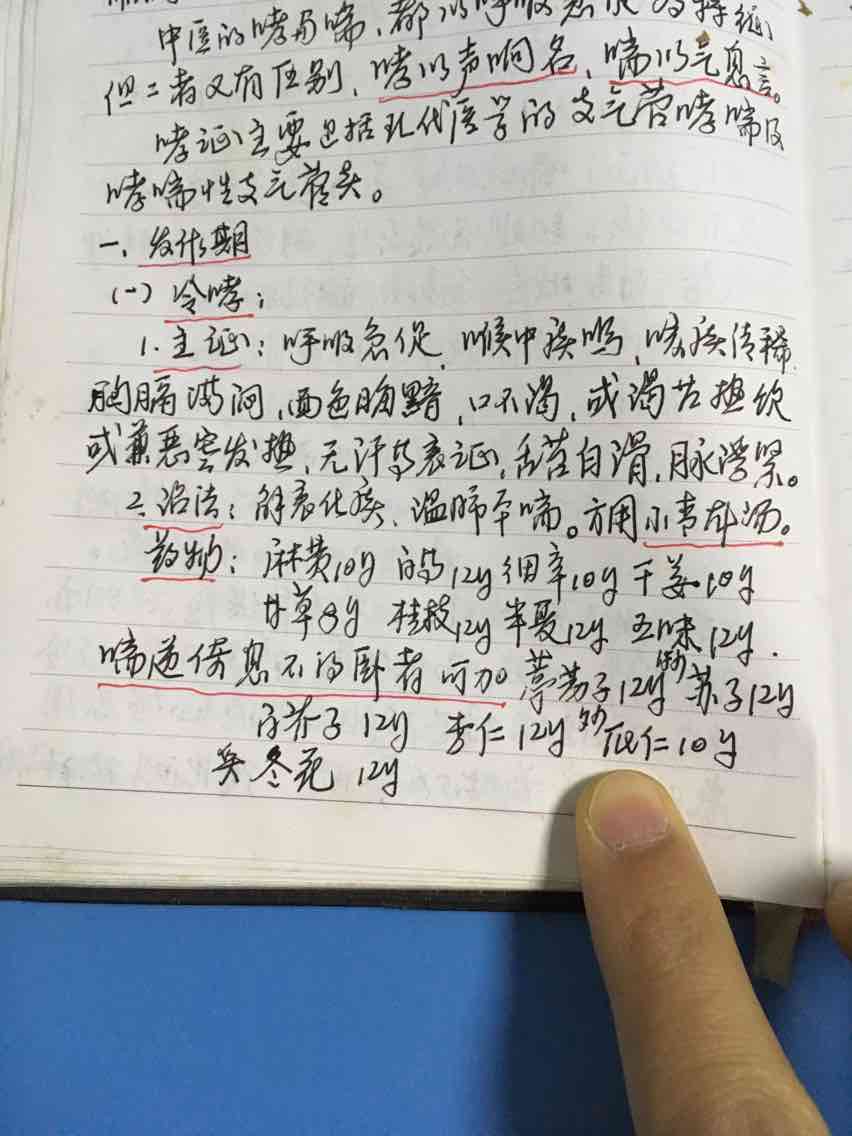 中医的哮与喘，都以呼吸急促为特征，
但二者又有区别，哮以声响名，喘以气息言。
哮证主要包括现代医学的支气管哮喘及
哮喘性支气管炎。
一、发作期
（一）冷哮：
1. 主证：呼吸急促，喉中痰鸣，咳痰清稀，
胸膈满闷，面色晦黯，口不渴，或渴喜热饮
或兼恶寒发热，无汗等表证，舌苔白滑，脉浮紧。
2. 治法：解表化痰、温肺平喘。方用小青龙汤。
药物：麻黄10g 白芍12g 细辛10g 干姜10g
甘草8g 桂枝12g 半夏12g 五味12g.
喘逆倚息不得卧者可加 葶苈子12g 苏子12g
白芥子12g 杏仁12g 炒瓜仁10g
冬花12g